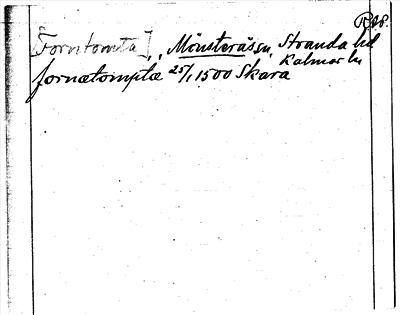 [Forntomta], Mönsteråssn, Stranda hd
Kalmar ln
fornætomptæ 25/1 1500 Skara